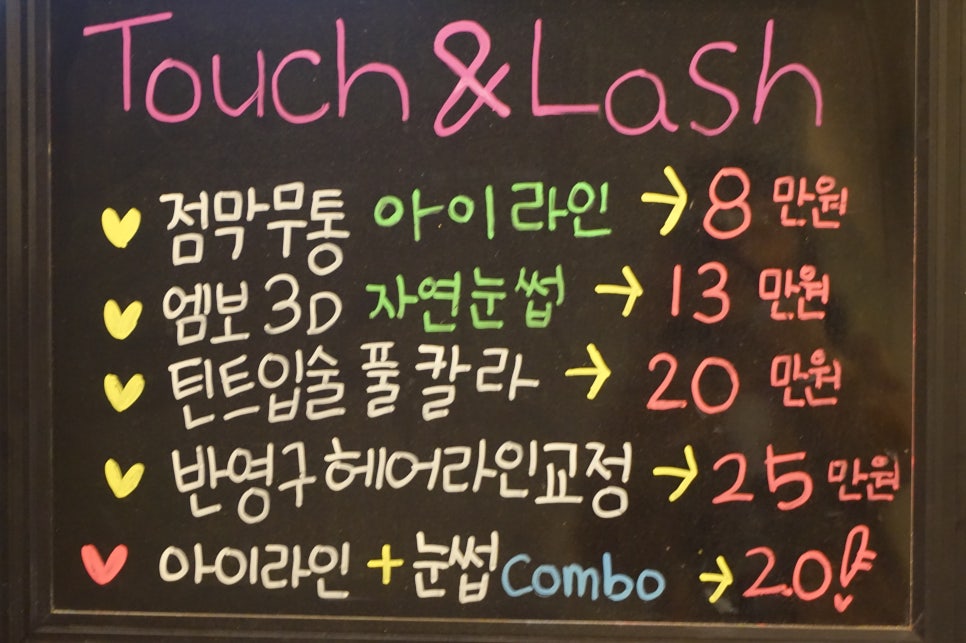 Touch & Lash
점막무통 아이라인 → 8 만원
엠보 3D 자연눈썹 → 13 만원
틴트입술 풀 칼라 → 20 만원
반영구헤어라인교정 → 25 만원
아이라인 + 눈썹 Combo → 20!